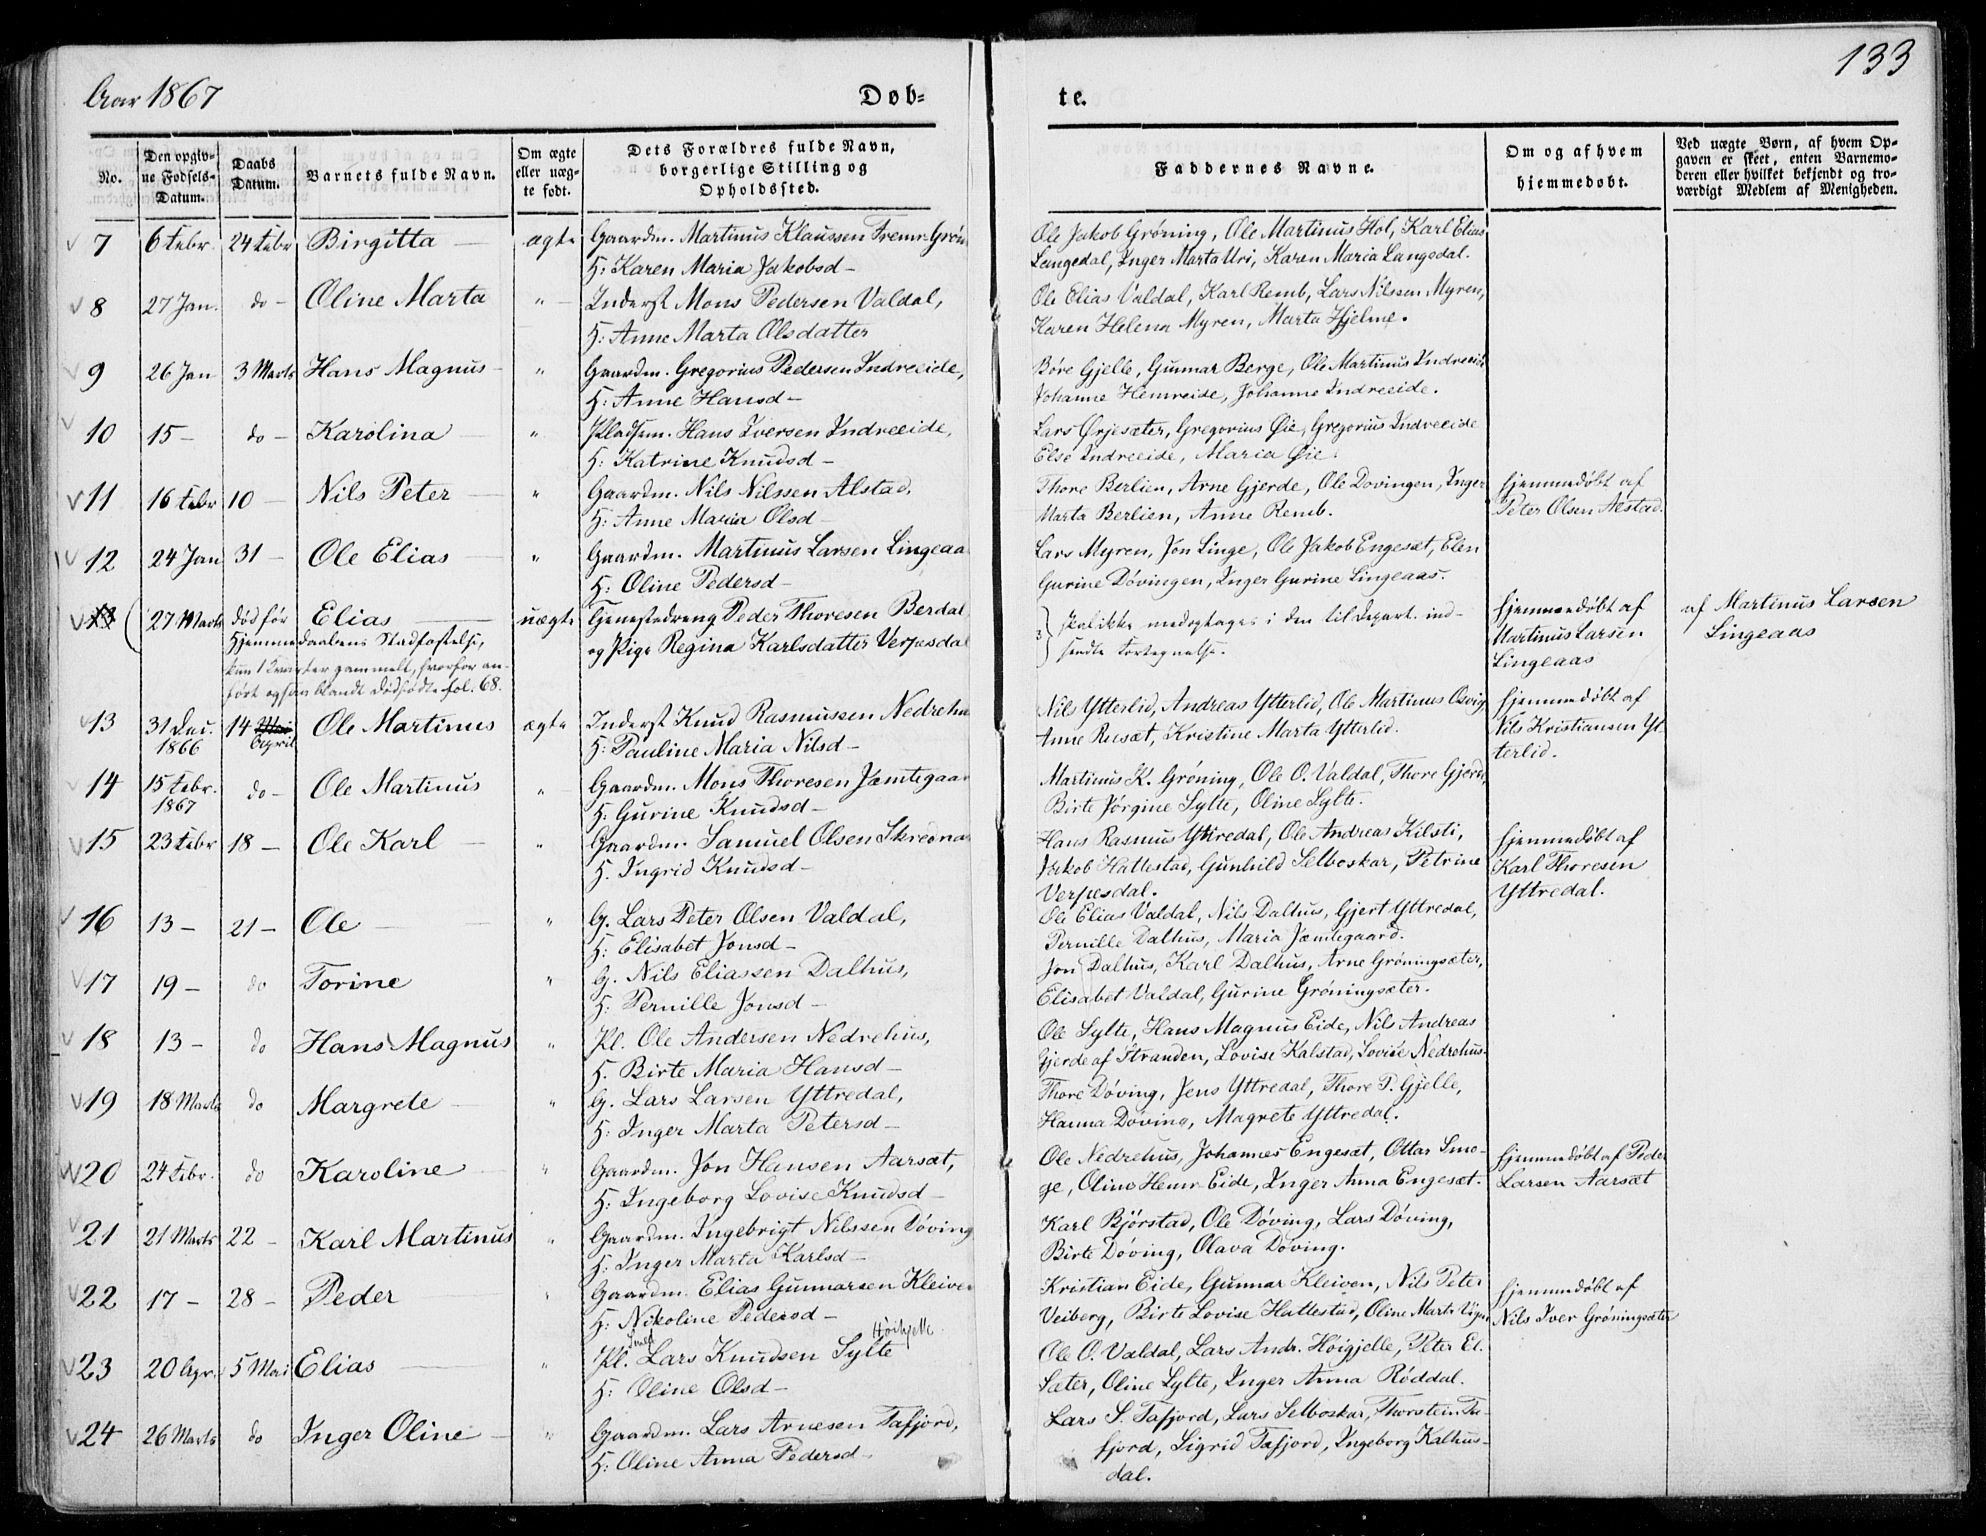 Aar 1867
Døb-
te.
133
No.
Den opgiv-
ne Fødsels-
Datum.
Daabs
Datum.
Barnets fulde Navn.
Om ægte
eller uæg-
te født.
Dets Forældres fulde Navn,
borgerlige Stilling og
Opholdssted.
Faddernes Navne.
Om og af hvem
hjemmedøbt.
Ved uægte Børn, af hvem Op-
gaven er skeet, enten Barnemo-
deren eller hvilket bekjendt og tro-
værdigt Medlem af Menigheden.
7 6 Febr. 24 Febr Birgitta ægte Gaardm. Martinus Klaussen Fremr. Grøn
H: Karen Maria Jakobsd-
Ole Jakob Grøning, Ole Martinus Hol, Karl Elias
Langedal, Inger Marta Uri, Karen Maria Langsdal.
8 27 Jan. do - Oline Marta " Inderst Mons Pedersen Valdal,
H: Anne Marta Olsdatter
Ole Elias Valdal, Karl Remb, Lars Nilssen Myren,
Karen Helena Myren, Marta Hjelme.
9 26 Jan 3 Marts Hans Magnus " Gaardm. Gregorius Pedersen Indreeide,
H: Anne Hansd-
Børe Gjelle, Gunnar Berge, Ole Martinus Indreeide
Johanne Hemreide, Johanne Indreeide.
10 15 - do - Karolina " Pladsm. Hans Iversen Indreeide,
H: Katrine Knudsd-
Lars Ørjesæter, Gregorius Øie, Gregorius Indreeide
Else Indreeide, Maria Øie.
11 16 Febr 10 - Nils Peter " Gaardm. Nils Nilssen Alstad,
H: Anne Maria Olsd-
Thore Berlien, Arne Gjerde, Ole Dovingen, Inger
Marta Berlien, Anne Remb.
hjemmedøbt af
Peter Olsen Alstad.
12 24 Jan 31 - Ole Elias " Gaardm. Martinus Larsen Lingeaa
H: Oline Pedersd-
Lars Myren, Jon Linge, Ole Jakob Engeset, Elen
Gurine Døvingen, Inger Gurine Lingeaas.
13 27 Marts død før Elias uægte Tjenestedreng Peder Thoresen Berdal
Hjemmedaabens Stadfæstelse,
kun 1 Kvarter gammelt, hvorfor an-
ført ogsaa blandt dødfødte fol. 68.
og Pige Regina Karlsdatter Verpesdal
skal ikke medregnes i den til Depart. ind-
sendte Fortegnelse.
hjemmedøbt af
Martinus Larsen
Lingeaas
af Martinus Larsen
Lingeaas
13 31 Dec. 14 Mai Ole Martinus ægte Inderst Knud Rasmussen Nedrehu
1866 April
H: Pauline Maria Nilsd-
Nils Ytterlid, Andreas Ytterlid, Ole Martinus Osvig,
Anne Rusæt, Kristine Marta Ytterlid.
hjemmedøbt af
Nils Kristiansen Yt
terlid.
14 15 Febr. do - Ole Martinus " Gaardm. Mons Thoresen Jæmtegaar
1867
H: Gurine Knudsd-
Martinus K. Grøning, Ole O. Valdal, Thore Gjerde,
Birte Jørgine Sylte, Oline Sylte.
15 23 Febr 18 - Ole Karl " Gaardm. Samuel Olsen Skredna
H. Ingrid Knudsd-
Hans Rasmus Yttredal, Ole Andreas Kilsti,
Jakob Hattestad, Gunhild Selboskar, Petrine
Verpesdal.
hjemmedøbt af
Karl Thoresen
Yttredal.
16 13 - 21 - Ole " G. Lars Peter Olsen Valdal,
H: Elisabet Jonsd-
Ole Elias Valdal, Nils Dalhus, Gjert Yttredal,
Pernille Dalhus, Maria Jæmtegaard.
17 19 - do Torine " G. Nils Eliassen Dalhus,
H: Pernille Jonsd-
Jon Dalhus, Karl Dalhus, Arne Grøningsæter,
Elisabet Valdal, Gurine Grøningsæter.
18 13 - do Hans Magnus " Pl. Ole Andersen Nedrehus,
H. Birte Maria Hansd-
Ole Sylte, Hans Magnus Eide, Nils Andreas
Gjerde af Stranden, Lovise Kalstad, Lovise Nedrehus.
19 18 Marts do Margrete " G. Lars Larsen Yttredal,
H: Inger Marta Petersd-
Thore Døving, Jens Yttredal, Thore P. Gjelle,
Hanna Døving, Magrete Yttredal.
20 24 Febr. do Karoline " Gaardm. Jon Hansen Aarsæt,
H: Ingeborg Lovise Knudsd-
Ole Nedrehus, Johannes Engesæt, Ottar Smo-
ge, Oline Hemr-Eide, Inger Anna Engesæt.
hjemmedøbt af Peder
Larsen Aarsæt
21 21 Marts 22 - Karl Martinus " Gaardm. Ingebrigt Nilssen Døving
H: Inger Marta Karlsd-
Karl Bjørstad, Ole Døving, Lars Døving,
Birte Døving, Olava Døving.
22 17 - 28 - Peder " Gaardm. Elias Gunnarsen Kleiven
H: Nikoline Pedersd-
Kristian Eide, Gunnar Kleiven, Nils Peter
Veiberg, Birte Lovise Hattestad, Oline Marta
hjemmedøbt af
Nils Iver Grøningsæter
23 20 Apr. 5 Mai Elias " Pl. Lars Knudsen Sylte
H: Oline Olsd-
Ole O. Valdal, Lars Andr. Høigjelle, Peter El.
Sæter, Oline Sylte, Inger Anna Røddal.
24 26 Marts do Inger Oline " Gaardm. Lars Arnesen Tafjord,
H: Oline Anna Pedersd-
Lars S. Tafjord, Lars Selboskar, Thorstein Ta-
fjord, Sigrid Tafjord, Ingeborg Kalhus-
dal.